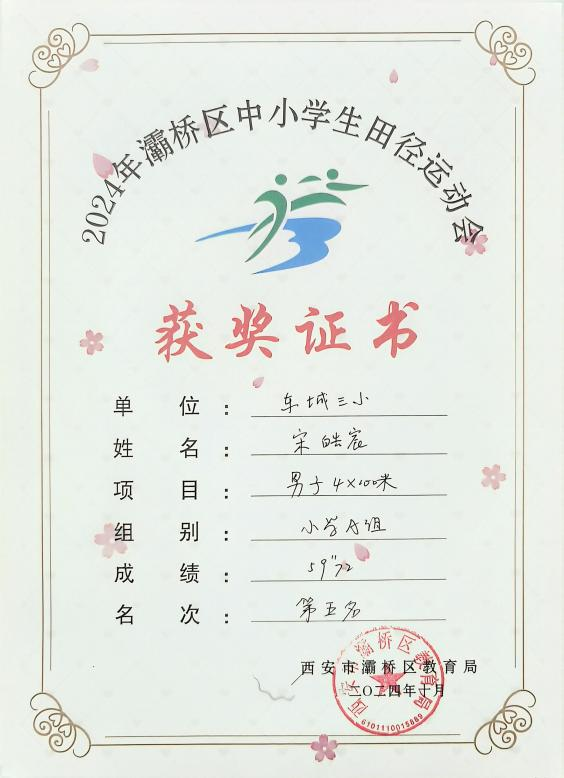 2024年灞桥区中小学生田径运动会
获奖证书
单位：车城三小
姓名：宋皓宸
项目：男子4×100米
组别：小学A组
成绩：59"72
名次：第五名
西安市灞桥区教育局
二〇二四年十月
西安市灞桥区教育局
6101110015889